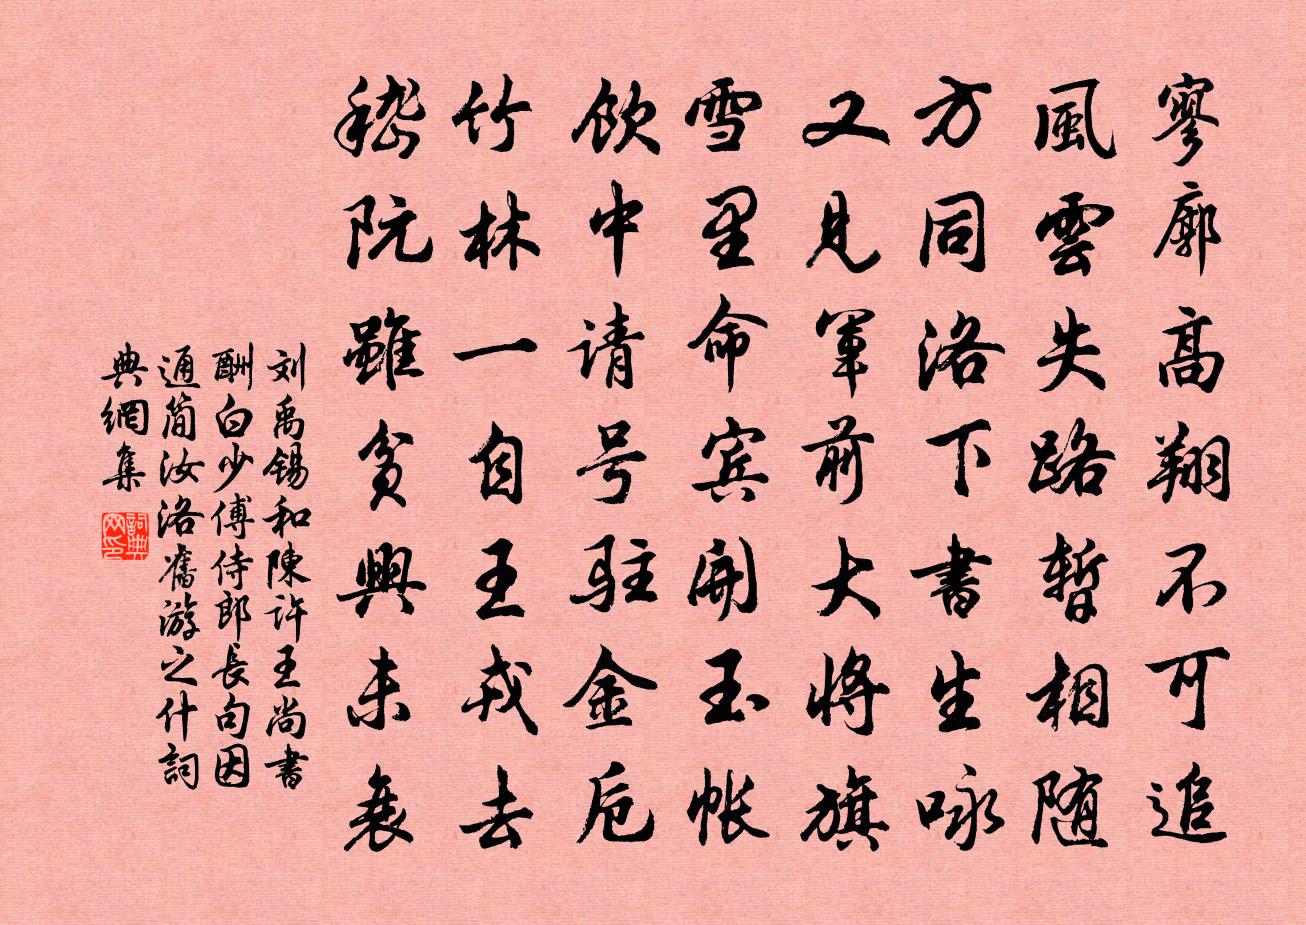 寥廓高翔不可追
風雲失路暫相随
方同洛下書生咏
又見軍前大將旗
雪里命宾開玉帐
飲中请号驻金卮
竹林一自王戎去
嵇阮雖贫興未衰
刘禹锡和陳许王尚書
酬白少傅侍郎長句因
通简汝洛舊游之什詞
典網集
詞典网印